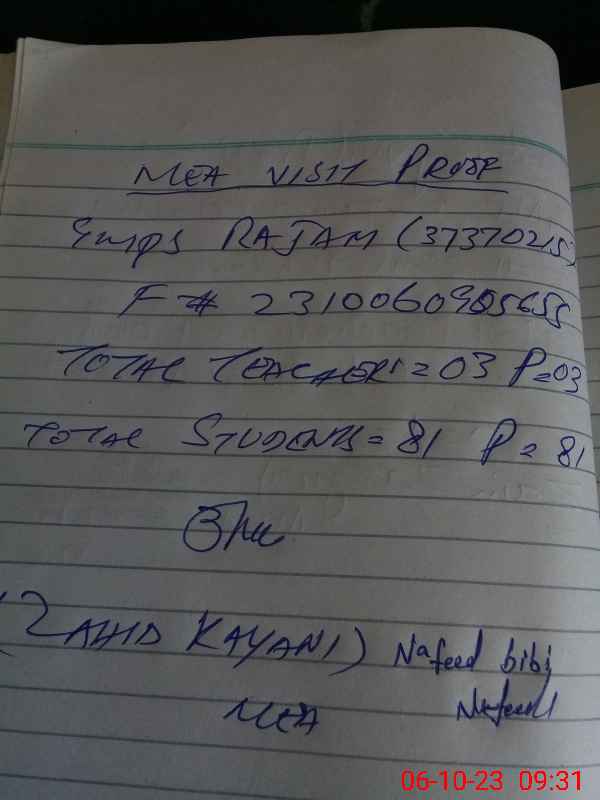 MEA VISIT PROOF
GMPS RAJAM (37370215)
F # 2310060905655
TOTAL TEACHER = 03 P=03
TOTAL STUDENTS = 81 P = 81
(ZAHID KAYANI) Nafeed bibi
MEA
06-10-23 09:31